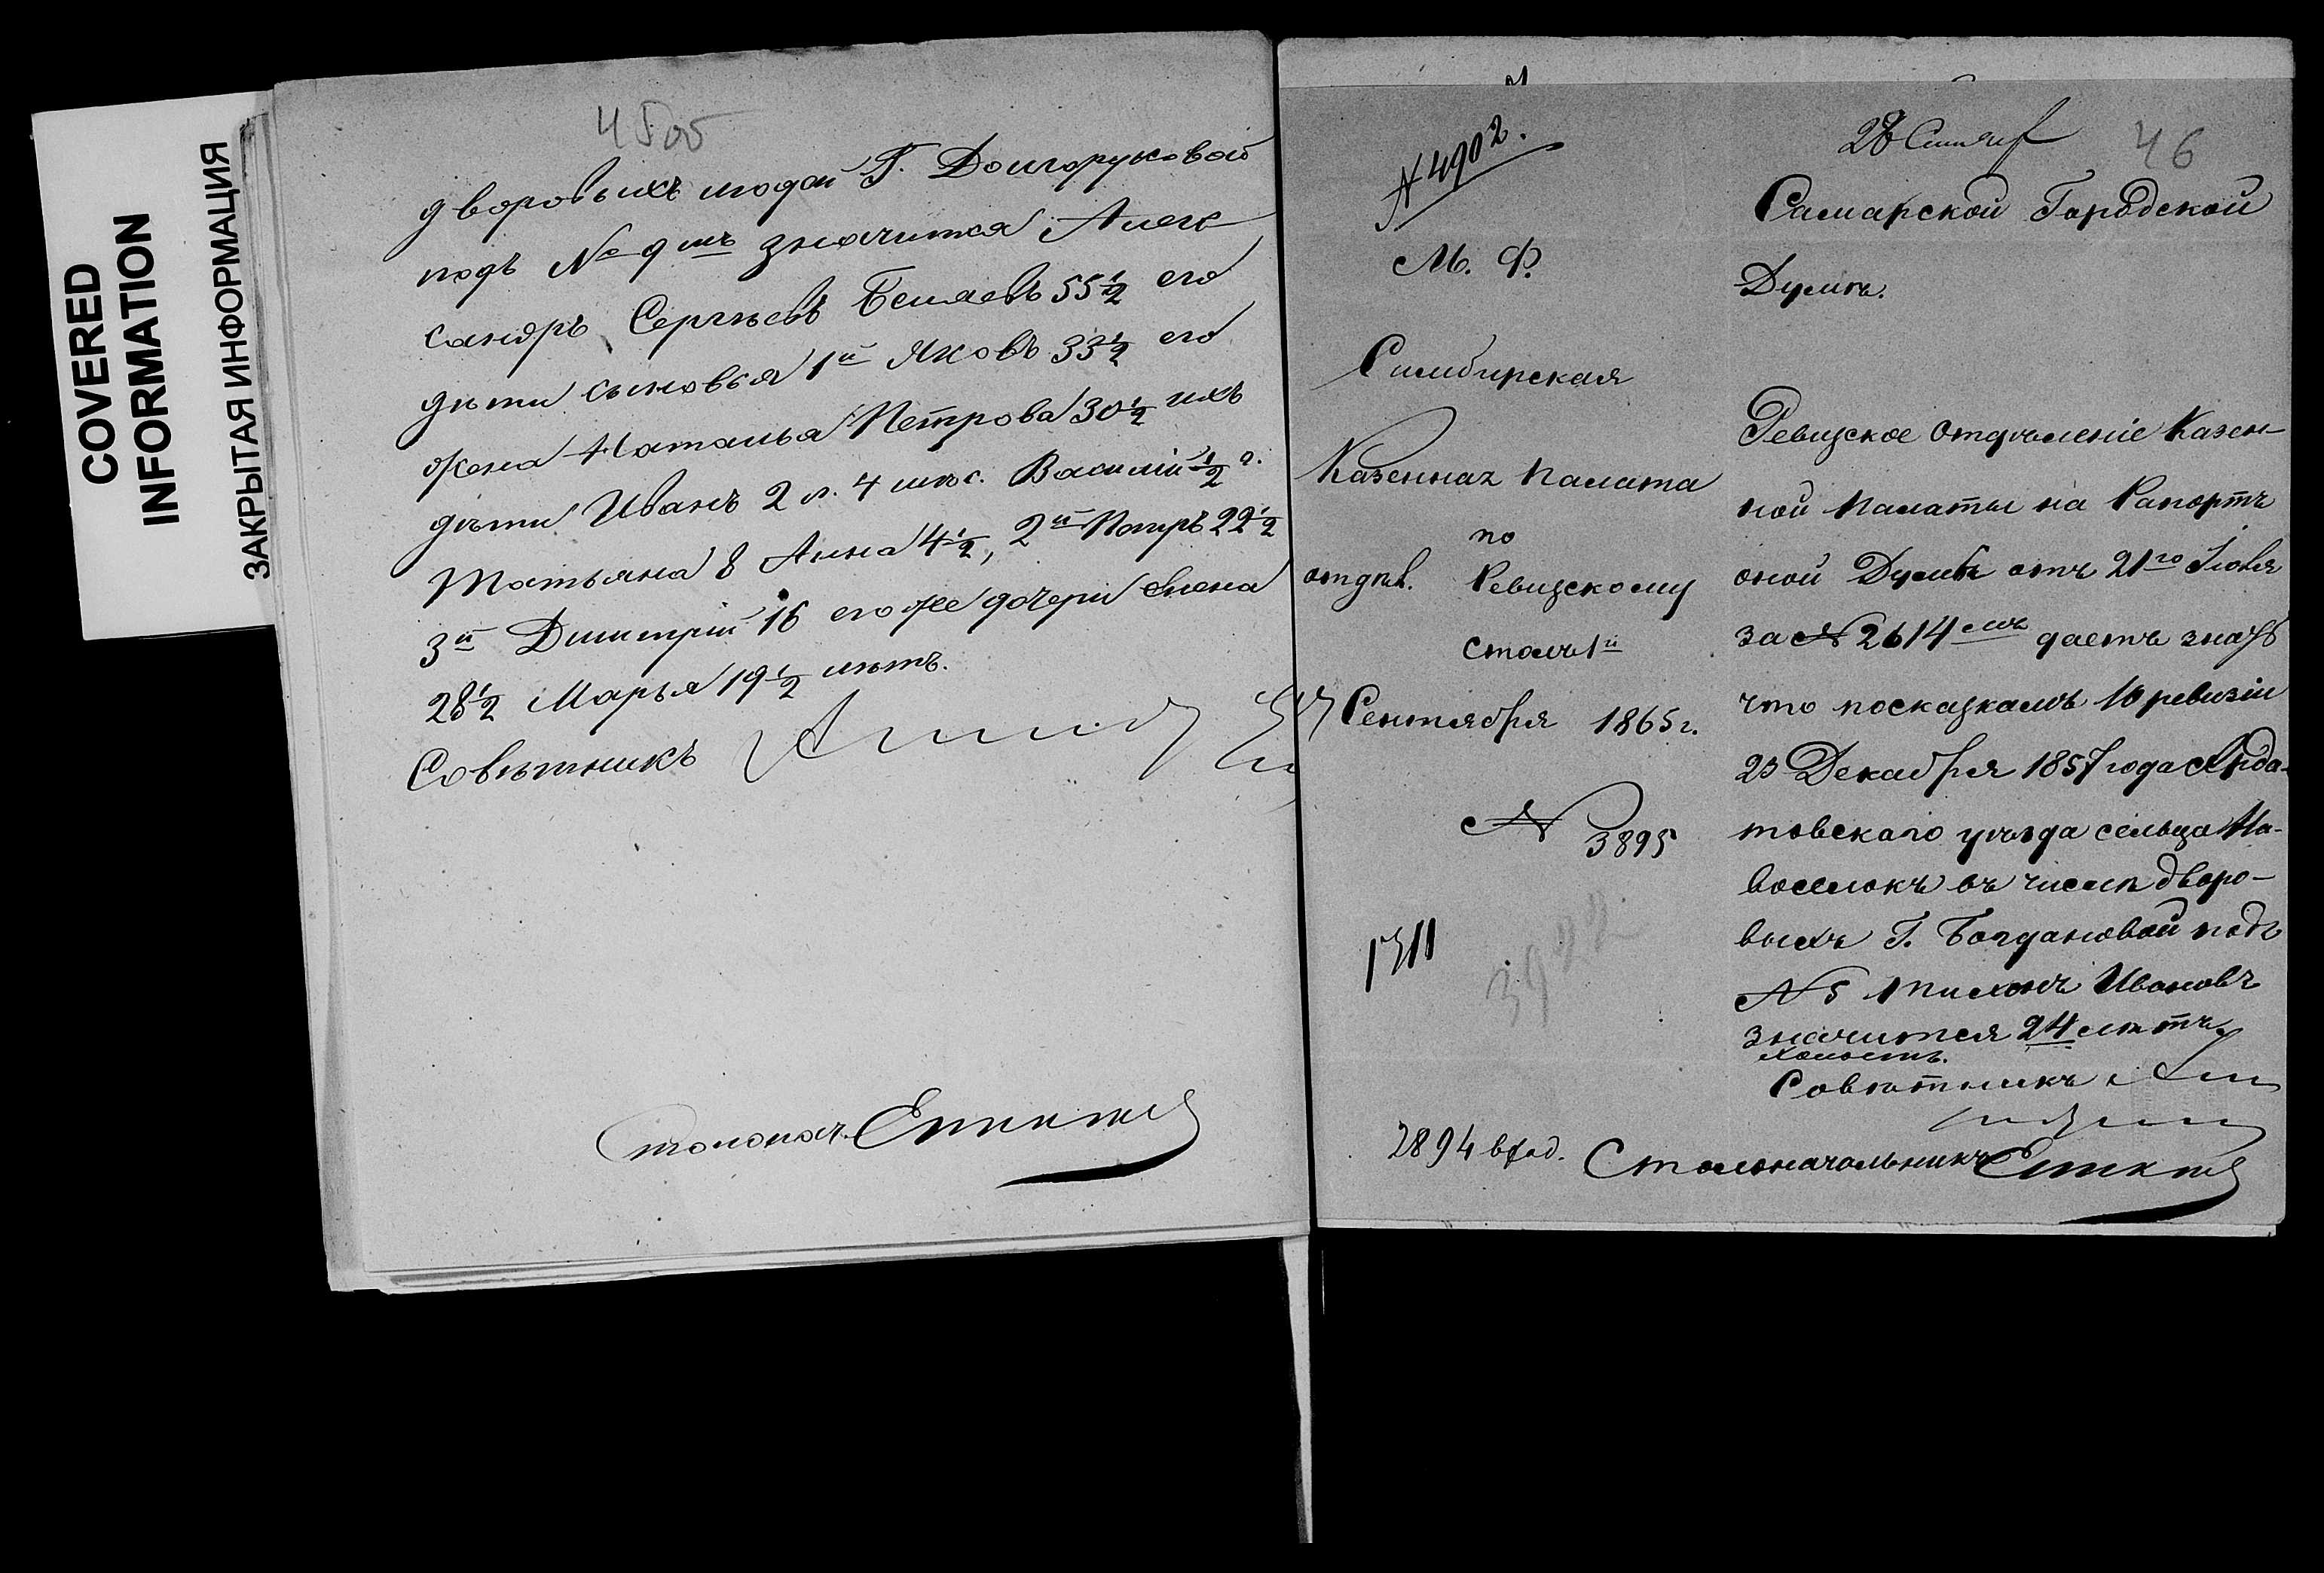 COVERED
INFORMATION
ЗАКРЫТАЯ ИНФОРМАЦИЯ
45об
дворовыхъ людей Г. Долгоруковой
подъ № 9мъ значится Алек
сандръ Сергѣевъ Беляевъ 55½ его
дѣти сыновья 1й Яковъ 33½ его
жена Наталья Петрова 30½ ихъ
дѣти Иванъ 2 л. 4 мѣс. Василій ½ г.
Татьяна 8 Анна 4½, 2й Петръ 22½
3й Димитрій 16 его же дочери Елена
28½ Марья 19½ лѣтъ.
Совѣтникъ
Столонач.
№ 4902.
М. Ф.
Симбирская
Казенная Палата
по
отдѣл. Ревизскому
Столъ 1й
17 Сентября 1865 г.
№ 3895
1711
3922
2894 вход.
28 Сентяб
46
Самарской Городской
Думѣ.
Ревизское Отдѣленіе Казен-
ной Палаты на Рапортъ
оной Думы отъ 21го Іюля
за № 2614мъ даетъ знать
что по сказкамъ 10 ревизіи
23 Декабря 1857 года Арда-
товскаго уѣзда сельца На-
воселокъ въ числѣ дворо-
выхъ Г. Богдановой подъ
№ 5 Тихонъ Ивановъ
значится 24 лѣтъ
холостъ.
Совѣтникъ
Столоначальникъ